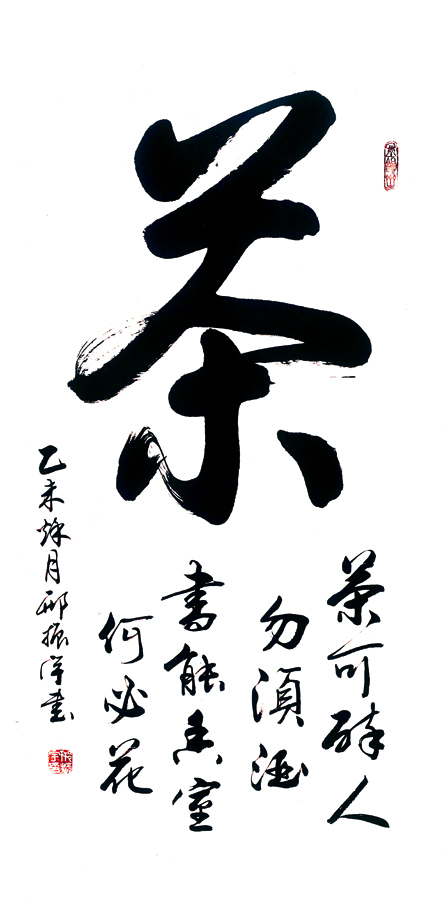 茶
茶可醉人
勿須酒
書能香室
何必花
乙未秌月邢振洋書